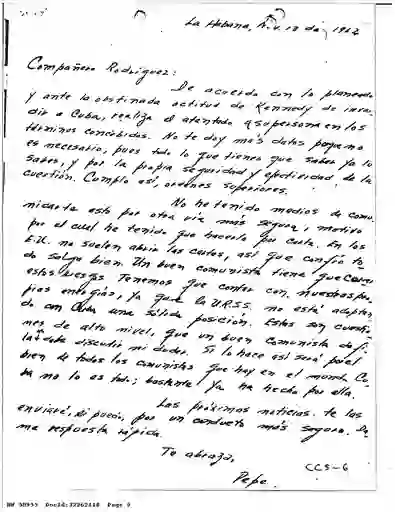 La Habana, Nov. 18 de, 1962
Compañero Rodríguez:
De acuerdo con lo planeado
y ante la obstinada actitud de Kennedy de inva-
dir a Cuba, realiza el atentado a su persona en los
términos concebidos. No te doy más datos porque no
es necesario, pues todo lo que tienes que saber ya lo
sabes, y por la propia seguridad y efectividad de la
cuestión. Cumplo así, ordenes superiores.
No he tenido medios de comu-
nicarte esto por otra vía más segura, motivo
por el cual he tenido que hacerlo por carta. En los
E.U. no suelen abrir las cartas, así que confío to-
do salga bien. Un buen comunista tiene que correr
estos riesgos. Tenemos que contar con nuestras pro-
pias energías, ya que la U.R.S.S. no está adoptan-
do con Cuba una sólida posición. Estas son cuestio-
nes de alto nivel, que un buen comunista
debe discutir ni dudar. Si lo haces así será por el
bien de todos los comunistas que hay en el mundo. Cu-
ba no lo es todo; bastante ya ha hecho por ella.
Las próximas noticias te las
enviaré, si puedo, por un conducto más seguro. Da-
me respuesta rápida.
Te abraza,
Pepe
CCS-6
NW 50955 Page 9